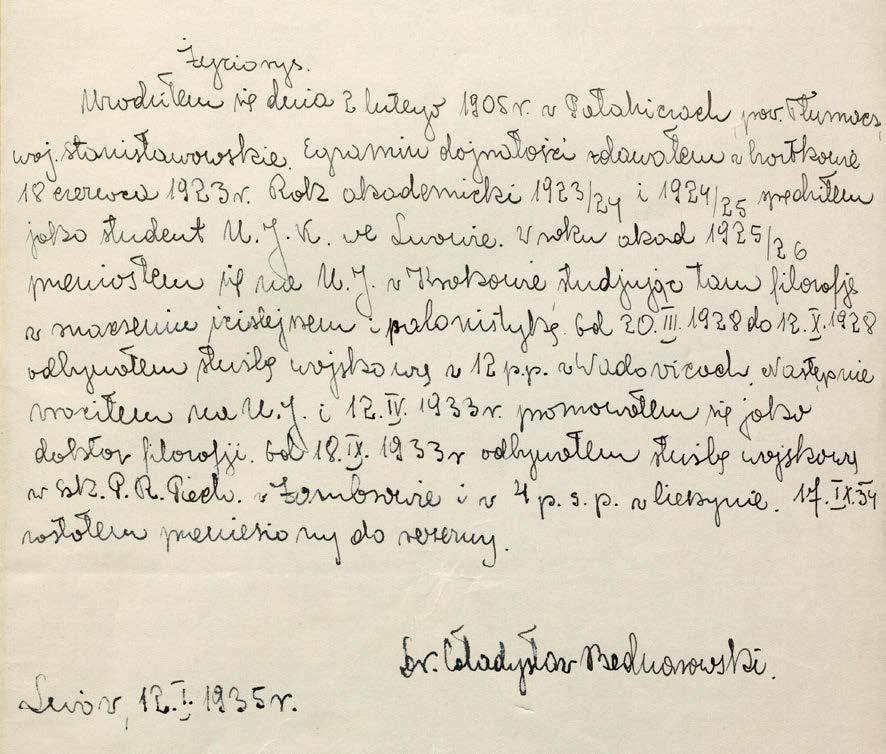 Życiorys.
Urodziłem się dnia 2 lutego 1905 r. w Pałahiczach, pow. Tłumacz,
woj. Stanisławowskie. Egzamin dojrzałości zdawałem w Czortkowie
18 czerwca 1923 r. Rok akademicki 1923/24 i 1924/25 spędziłem
jako student U. J. K. we Lwowie. W roku akad 1925/26
przeniosłem się na U. J. w Krakowie studjując tam filozofję
w znaczeniu ściślejszem i polonistykę. Od 20. III. 1928 do 12. X. 1928
odbywałem służbę wojskową w 12 p.p. w Wadowicach. Następnie
wróciłem na U. J. i 12. IV. 1933 r. promowałem się jako
doktor filozofji. Od 18. IX. 1933 r odbywałem służbę wojskową
w Szk. P. R. Piech. w Zambrowie i w 4 p. s. p. w Cieszynie. 17. IX. 34
zostałem przeniesiony do rezerwy.
Dr. Władysław Bednarowski.
Lwów, 12. I. 1935 r.